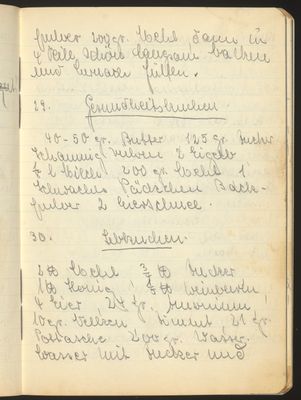 pulver 200 gr. Mehl dann in
4 Teile schön langsam backen
und hernach füllen.
29. Gesundheitskuchen.
40-50 gr. Butter 125 gr. Zucker
schaumig rühren 2 Eigelb
200 gr. Mehl 1
schwaches Päckchen Back-
pulver 2 Eierschnee.
30. Lebkuchen.
2 ℔ Mehl 3/4 ℔ Zucker
1 ℔ Honig ℔ Weinbeeren
4 Eier, 24 gr.
10 gr. Nelken Zimmt 21 gr.
Pottasche 200 gr. Wasser.
Wasser mit Zucker und